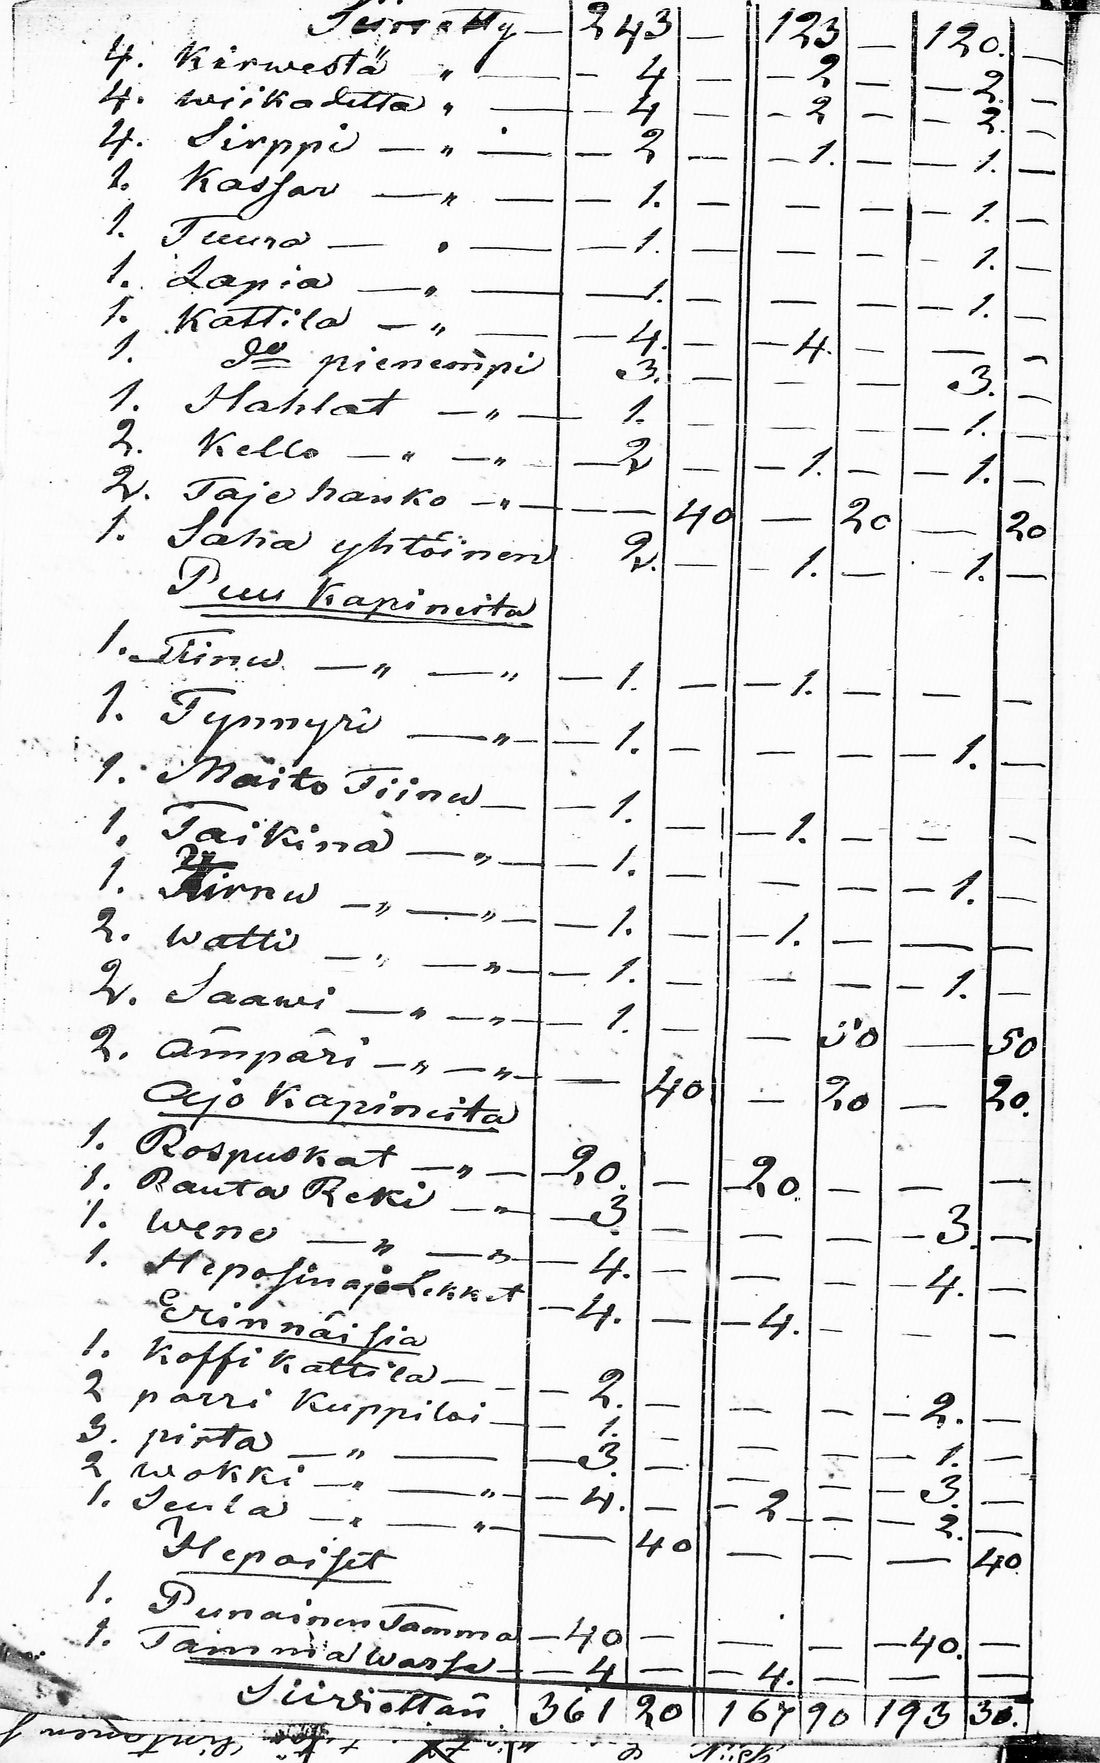 Siirretty — 243 — 123 — 120. —
4. Kirwestä " — 4 — — 2 — — 2. —
4. wiikadetta " — 4 — — 2 — — 2. —
4. Sirppi — " — 2 — — 1. — — 1. —
1. Kassar — " — 1. — — — — 1. —
1. Tuura — " — 1. — — — — 1. —
1. Lapia — " — 1. — — — — 1. —
1. Kattila — " — 4. — — 4. — — —
1. Do pienempi 3. — — — 3. —
1. Hahlat — " — 1. — — — — 1. —
2. Kello — " — " — 2 — — 1. — — 1. —
2. Tajehanko — " — — 40 — 20 — 20
1. Saha yhtöinen 2. — — 1. — — 1. —
Puu Kapineita
1. Tiinu — " — " — 1. — — 1. — — —
1. Tynnyri — " — — 1. — — — — 1. —
1. Maito Tiinu — — 1. — — 1. — — —
1. Taikina — " — — 1. — — — — 1. —
1. Kirnu — " — " — 1. — — 1. — — —
2. watti — " — " — 1. — — — — 1. —
2. Saawi — " — " — 1. — — 50 — 50
2. ämpäri — " — " — — 40 — 20 — 20.
Ajo Kapineita
1. Rospuskat — " — 20. — 20. — — —
1. Rauta Reki — " — 3 — — — — 3. —
1. wene — " — " — 4. — — — — 4. —
1. Heposin ajo Lekket — 4. — — 4. — — —
Erinnäisiä
1. Koffi Kattila — — 2. — — — — 2. —
2 parri Kuppiloi — 1. — — — — 1. —
3. pirta — " — 3. — — — — 3. —
2 wokki — " — " — 4. — — 2 — — 2. —
1. Seula — " — " — — 40 — — — 40
Hepoiset
1. Punainen Tamma — 40 — — — — 40. —
1. Tamma warsa — 4 — — 4. — — —
Siirrettän 361 20 167 90 193 30.